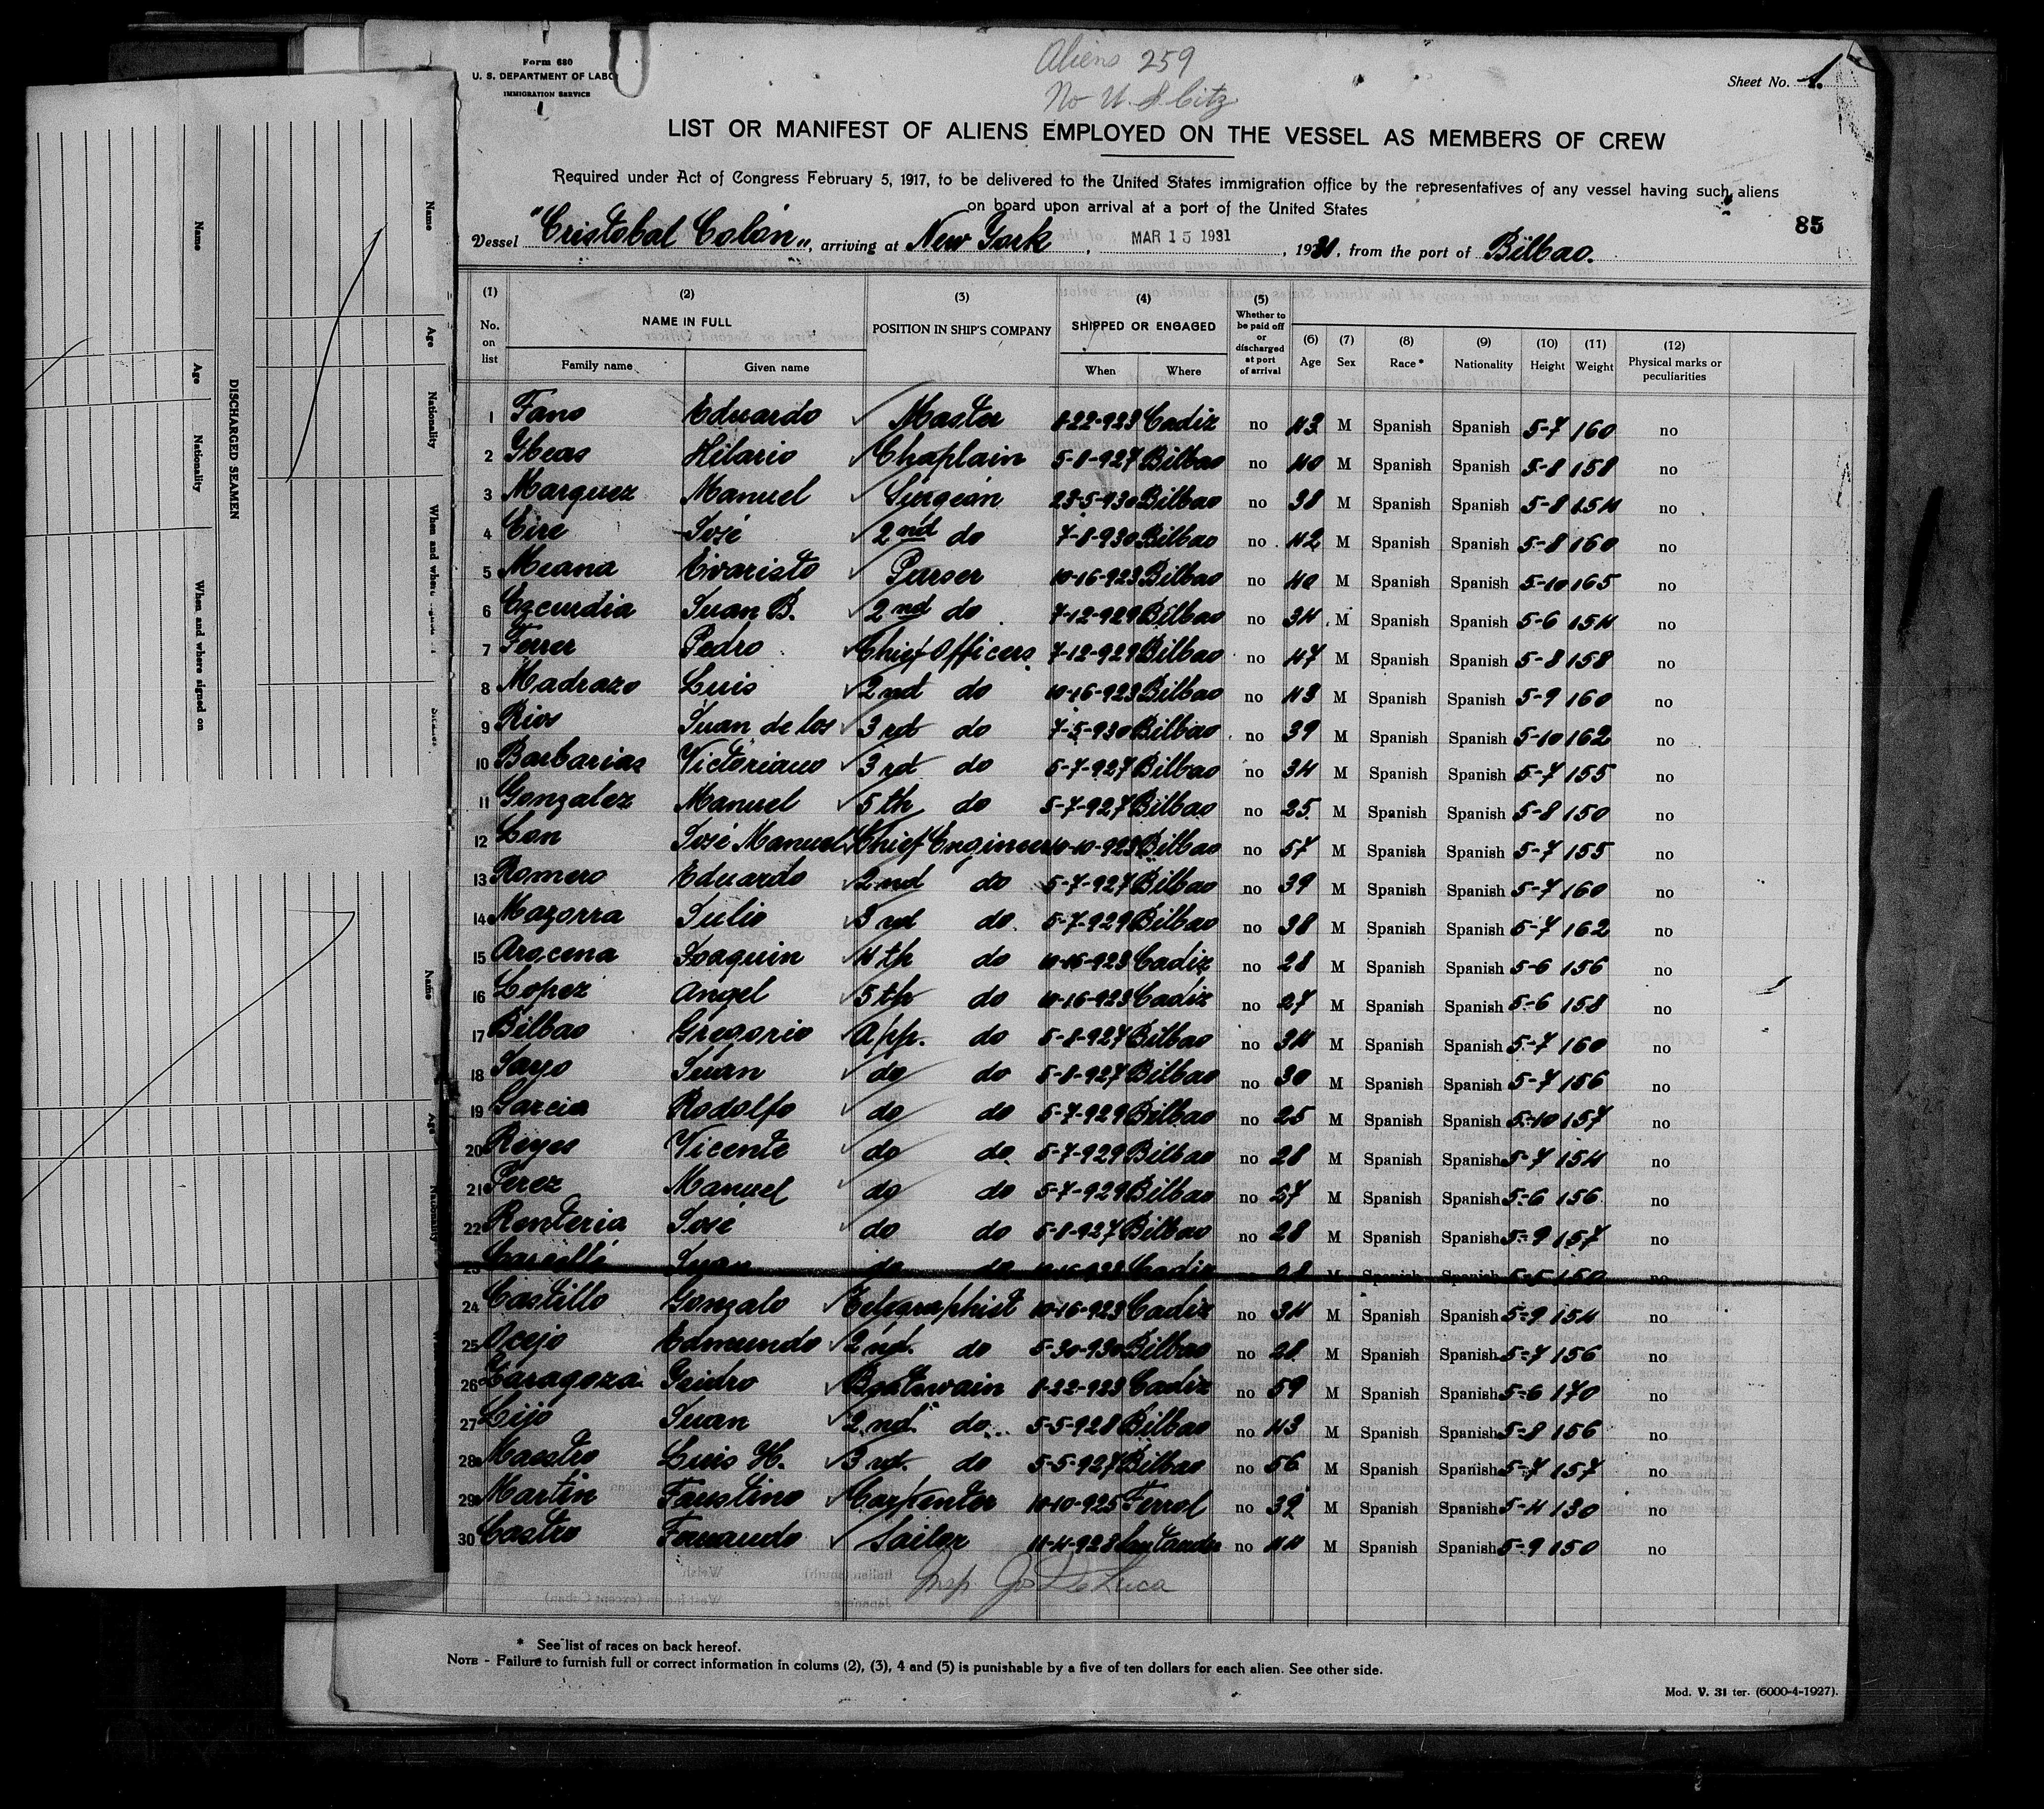 Form 680
U. S. DEPARTMENT OF LABO
IMMIGRATION SERVICE
Aliens 259
No U. S. Citz
Sheet No. 1.
LIST OR MANIFEST OF ALIENS EMPLOYED ON THE VESSEL AS MEMBERS OF CREW
Required under Act of Congress February 5, 1917, to be delivered to the United States immigration office by the representatives of any vessel having such aliens
on board upon arrival at a port of the United States
85
Vessel "Cristobal Colón", arriving at New York, MAR 15 1931, 1931, from the port of Bilbao.
(1) No. on list (2) NAME IN FULL Family name Given name (3) POSITION IN SHIP'S COMPANY (4) SHIPPED OR ENGAGED When Where (5) Whether to be paid off or discharged at port of arrival (6) Age (7) Sex (8) Race* (9) Nationality (10) Height (11) Weight (12) Physical marks or peculiarities
1 Fano Eduardo Master 8-22-923 Cadiz no 43 M Spanish Spanish 5-7 160 no
2 Ybeas Hilario Chaplain 5-8-927 Bilbao no 40 M Spanish Spanish 5-8 158 no
3 Marquez Manuel Surgeon 23-5-930 Bilbao no 38 M Spanish Spanish 5-8 154 no
4 Eire José 2nd do 7-8-930 Bilbao no 42 M Spanish Spanish 5-8 160 no
5 Meana Evaristo Purser 10-16-923 Bilbao no 40 M Spanish Spanish 5-10 165 no
6 Ezcurdia Juan B. 2nd do 7-12-929 Bilbao no 34 M Spanish Spanish 5-6 154 no
7 Ferrer Pedro Chief Officers 7-12-929 Bilbao no 47 M Spanish Spanish 5-8 158 no
8 Madrazo Luis 2nd do 10-16-923 Bilbao no 43 M Spanish Spanish 5-9 160 no
9 Rios Juan de los 3rd do 7-5-930 Bilbao no 39 M Spanish Spanish 5-10 162 no
10 Barbarias Victoriano 3rd do 5-7-927 Bilbao no 34 M Spanish Spanish 5-7 155 no
11 Gonzalez Manuel 5th do 5-7-927 Bilbao no 25 M Spanish Spanish 5-8 150 no
12 José Manuel Chief Engineer 10-10-923 Bilbao no 57 M Spanish Spanish 5-7 155 no
13 Romero Eduardo 2nd do 5-7-927 Bilbao no 39 M Spanish Spanish 5-7 160 no
14 Mazorra Julio 3rd do 5-7-929 Bilbao no 38 M Spanish Spanish 5-7 162 no
15 Arocena Joaquin 4th do 10-16-923 Cadiz no 28 M Spanish Spanish 5-6 156 no
16 Lopez Angel 5th do 10-16-923 Cadiz no 27 M Spanish Spanish 5-6 158 no
17 Bilbao Gregorio App. do 5-8-927 Bilbao no 34 M Spanish Spanish 5-7 160 no
18 Sayo Juan do do 5-8-927 Bilbao no 30 M Spanish Spanish 5-7 156 no
19 Garcia Rodolfo do do 5-7-929 Bilbao no 25 M Spanish Spanish 5-10 157 no
20 Reyes Vicente do do 5-7-929 Bilbao no 28 M Spanish Spanish 5-7 154 no
21 Perez Manuel do do 5-7-929 Bilbao no 27 M Spanish Spanish 5-6 156 no
22 Renteria José do do 5-8-927 Bilbao no 28 M Spanish Spanish 5-9 157 no
23 Juan do do Cadiz no M Spanish Spanish 5-5 150 no
24 Castillo Gonzalo Telegraphist 10-16-923 Cadiz no 34 M Spanish Spanish 5-9 154 no
25 Acejo Edmundo 2nd. do 5-30-930 Bilbao no 28 M Spanish Spanish 5-7 156 no
26 Zaragoza Isidro Boatswain 8-22-923 Cadiz no 59 M Spanish Spanish 5-6 170 no
27 Lijo Juan 2nd. do 5-5-928 Bilbao no 43 M Spanish Spanish 5-8 156 no
28 Maestro Luis H. 3rd. do 5-5-927 Bilbao no 56 M Spanish Spanish 5-7 157 no
29 Martin Faustino Carpenter 10-10-925 Ferrol no 39 M Spanish Spanish 5-4 130 no
30 Castro Fernando Sailor 11-4-928 Santander no 44 M Spanish Spanish 5-9 150 no
Insp. Jos De Luca
* See list of races on back hereof.
NOTE - Failure to furnish full or correct information in colums (2), (3), 4 and (5) is punishable by a five of ten dollars for each alien. See other side.
Mod. V. 31 ter. (6000-4-1927).
DISCHARGED SEAMEN
Name
Age
Nationality
When and where signed on
Name
Age
Nationality
When and whe
Name
Age
Nationality